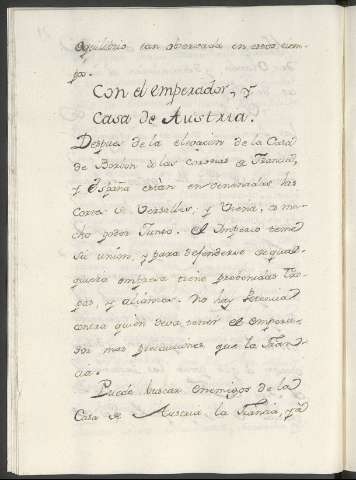 equilibrio tan observada en estos tiem-
pos.
Con el emperador, y
Casa de Austria.
Despues de la elevacion de la Casa
de Borbon á las Coronas de Francia,
y España están
Cortes de Versalles, y Viena,
cho poder junto. El Imperio teme
su union, y para defenderse de qual-
quiera empresa tiene prevenidas Tro-
pas, y alianzas. No hay Potencia
contra quien deva tener el empera-
dor mas precauciones que la Fran-
cia.
Puede buscar enemigos de la
Casa de Austria la Francia, ya